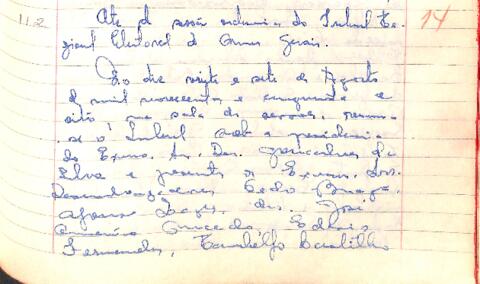 11.2
14
Ata da sessão ordinária do Tribunal Re-
gional Eleitoral de Minas Gerais.
Ao dia vinte e sete de Agosto
de mil novecentos e cinquenta e
oito, na sala de sessões, reuniu-
se o Tribunal sob a presidência
do Exmo. Sr. Des. Gonçalves da
Silva e presentes os Exmos. Srs.
Desembargadores Pedro Braga,
Afonso Lages, drs. José
Fernandes,